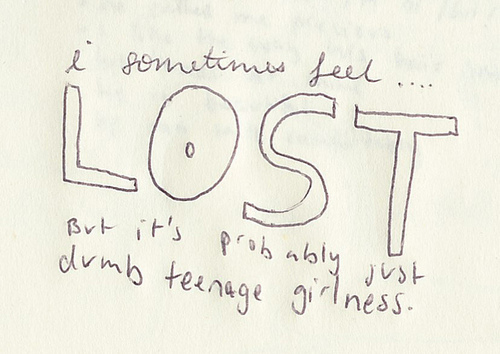 i sometimes feel ....
LOST
But it's probably just
dumb teenage girlness.